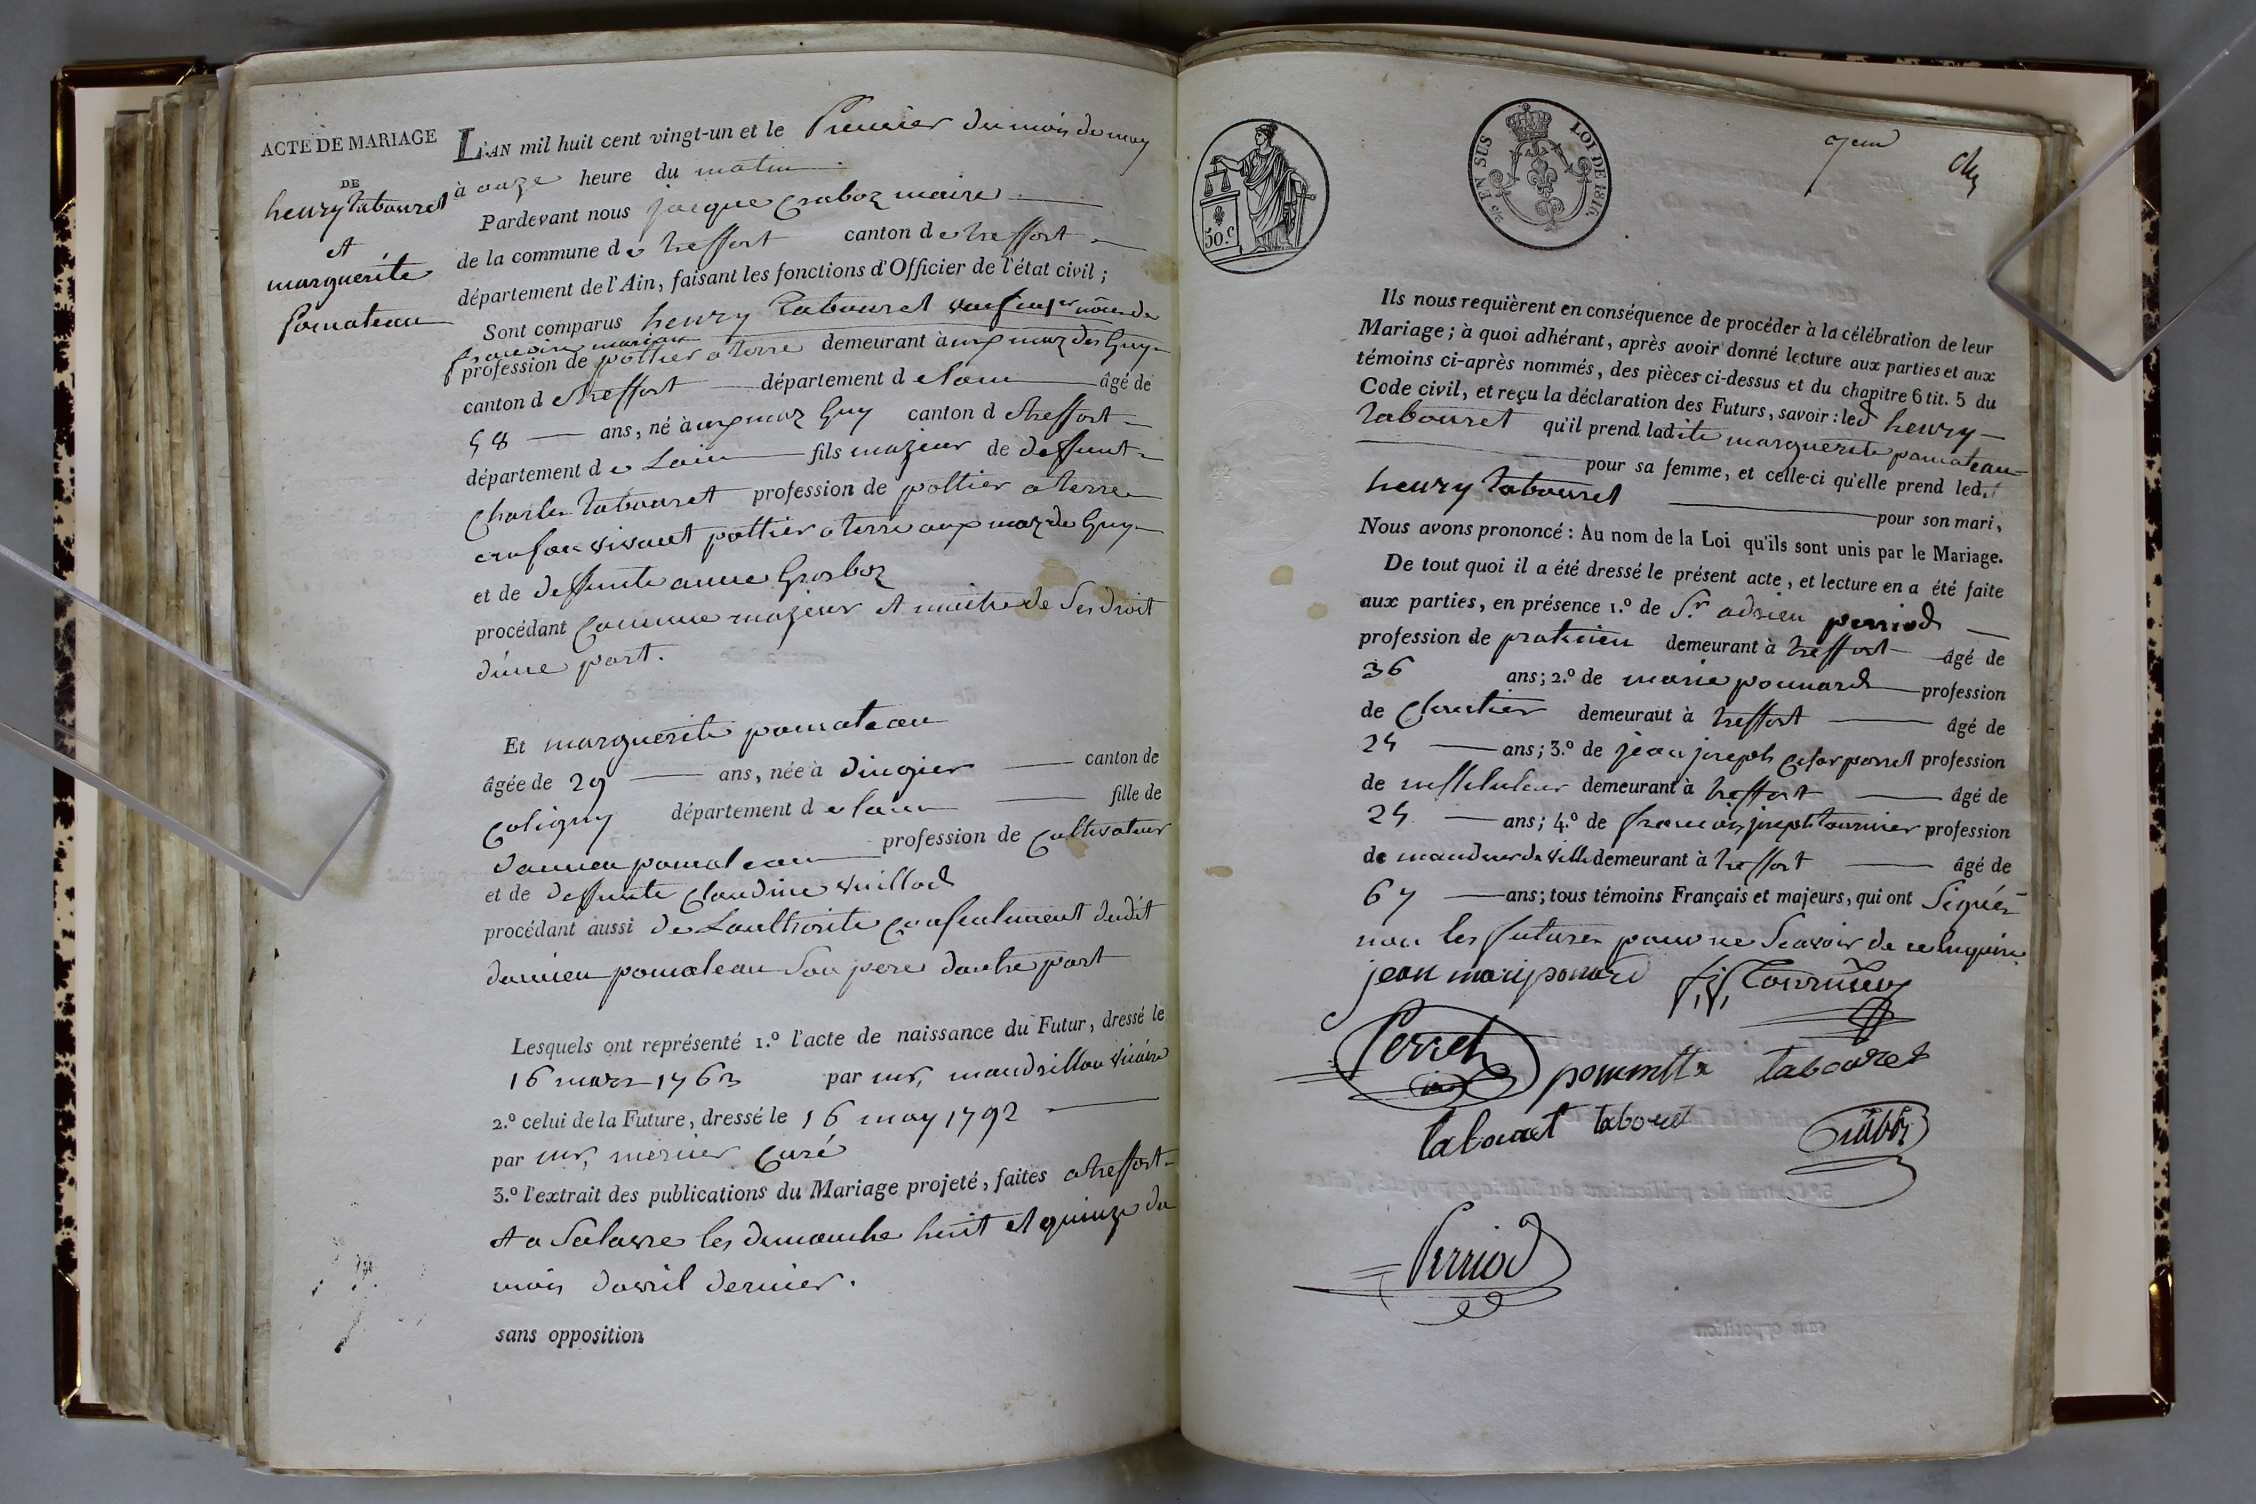 ACTE DE MARIAGE
DE
henry tabouret
et
marguerite
pomateau
L'AN mil huit cent vingt-un et le Premier du mois de may
à onze heure du matin
Pardevant nous jacque craboz maire
de la commune de treffort canton de treffort
département de l'Ain, faisant les fonctions d'Officier de l'état civil ;
Sont comparus henry tabouret
profession de pottier a terre demeurant à aux maz des Guy
canton de treffort département de lain âgé de
58 ans, né à aux maz Guy canton de treffort
département de Lain fils majeur de deffunt
Charle tabouret profession de pottier a terre
en son vivant pottier a terre aux maz de Guy
et de deffunte anne Grosboz
procédant comme majeur et maitre de ses droit
d'une part.
Et marguerite pomateau
âgée de 29 ans, née à dingier canton de
Coligny département de lain fille de
damien pomateau profession de cultivateur
et de deffunte Claudine vuillod
procédant aussi de Lauthorite consentement dudit
damien pomateau son pere dautre part
Lesquels ont représenté 1.º l'acte de naissance du Futur, dressé le
16 mars 1763 par mr, mandrillon vicaire
2.º celui de la Future, dressé le 16 may 1792
par mr, mernier Curé
3.º l'extrait des publications du Mariage projeté, faites a treffort
et a Salavre les dimanche huit et quinze du
mois davril dernier.
sans opposition
50.c
EN SUS
LOI DE 1816.
Ils nous requièrent en conséquence de procéder à la célébration de leur
Mariage ; à quoi adhérant, après avoir donné lecture aux parties et aux
témoins ci-après nommés, des pièces ci-dessus et du chapitre 6 tit. 5 du
Code civil, et reçu la déclaration des Futurs, savoir : led henry
tabouret qu'il prend ladite marguerite pomateau
pour sa femme, et celle-ci qu'elle prend led.
henry tabouret pour son mari,
Nous avons prononcé : Au nom de la Loi qu'ils sont unis par le Mariage.
De tout quoi il a été dressé le présent acte, et lecture en a été faite
aux parties, en présence 1.º de Sr adrien perriod
profession de praticien demeurant à treffort âgé de
36 ans ; 2.º de marie ponnard profession
de demeurant à treffort âgé de
25 ans ; 3.º de jean joseph profession
de instituteur demeurant à treffort âgé de
25 ans ; 4.º de francois joseph tournier profession
de demeurant à treffort âgé de
67 ans ; tous témoins Français et majeurs, qui ont Signés
non les futures pour ne Scavoir de ce Enquis
jean mari ponard f, j, Tournier
Perret
tabouret
tabouret tabouret
Perriod